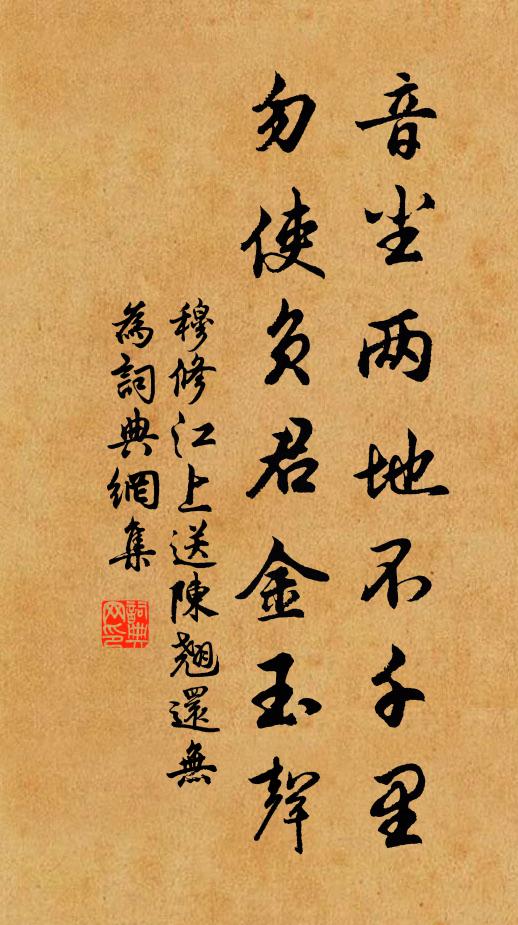 音尘两地不千里
勿使负君金玉聲
穆修江上送陳翹還無
為詞典網集
詞典網印